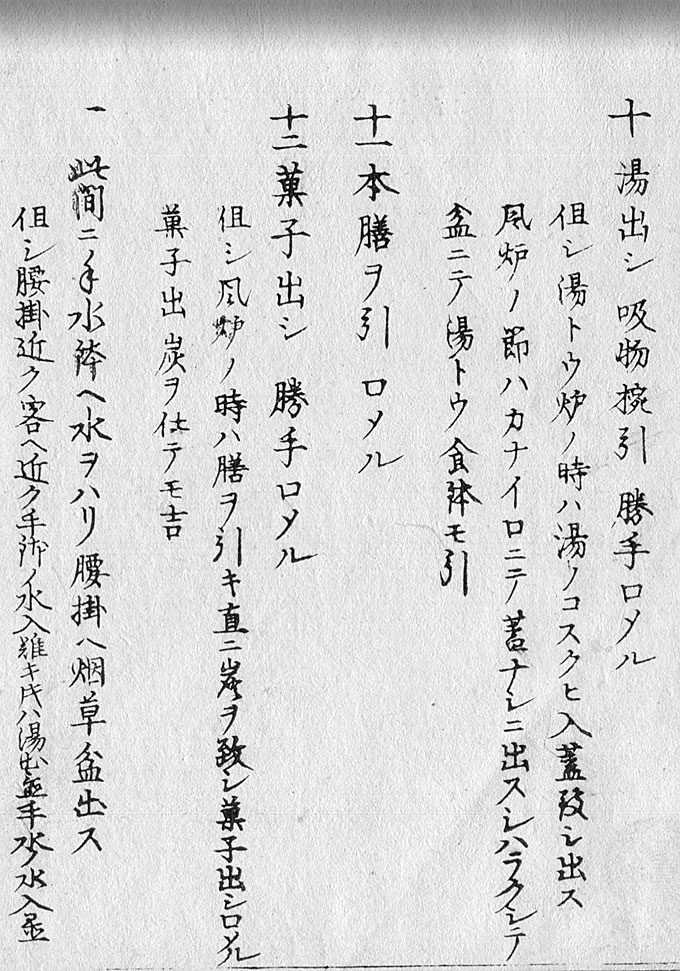 十 湯出シ 吸物椀引 勝手口〆ル
但シ湯トウ炉ノ時ハ湯ノコスクヒ入蓋致シ出ス
風炉ノ節ハカナイロニテ蓋ナシニ出スシハラクシテ
盆ニテ湯トウ食鉢モ引
十一 本膳ヲ引 口〆ル
十二 菓子出シ 勝手口〆ル
但シ風炉ノ時ハ膳ヲ引キ直ニ炭ヲ致シ菓子出シ口〆ル
菓子出炭ヲ仕テモ吉
一 此間ニ手水鉢ヘ水ヲハリ腰掛ヘ烟草盆出ス
但シ腰掛近ク客ヘ近ク手 水入難キ ハ湯出 手水ノ水入